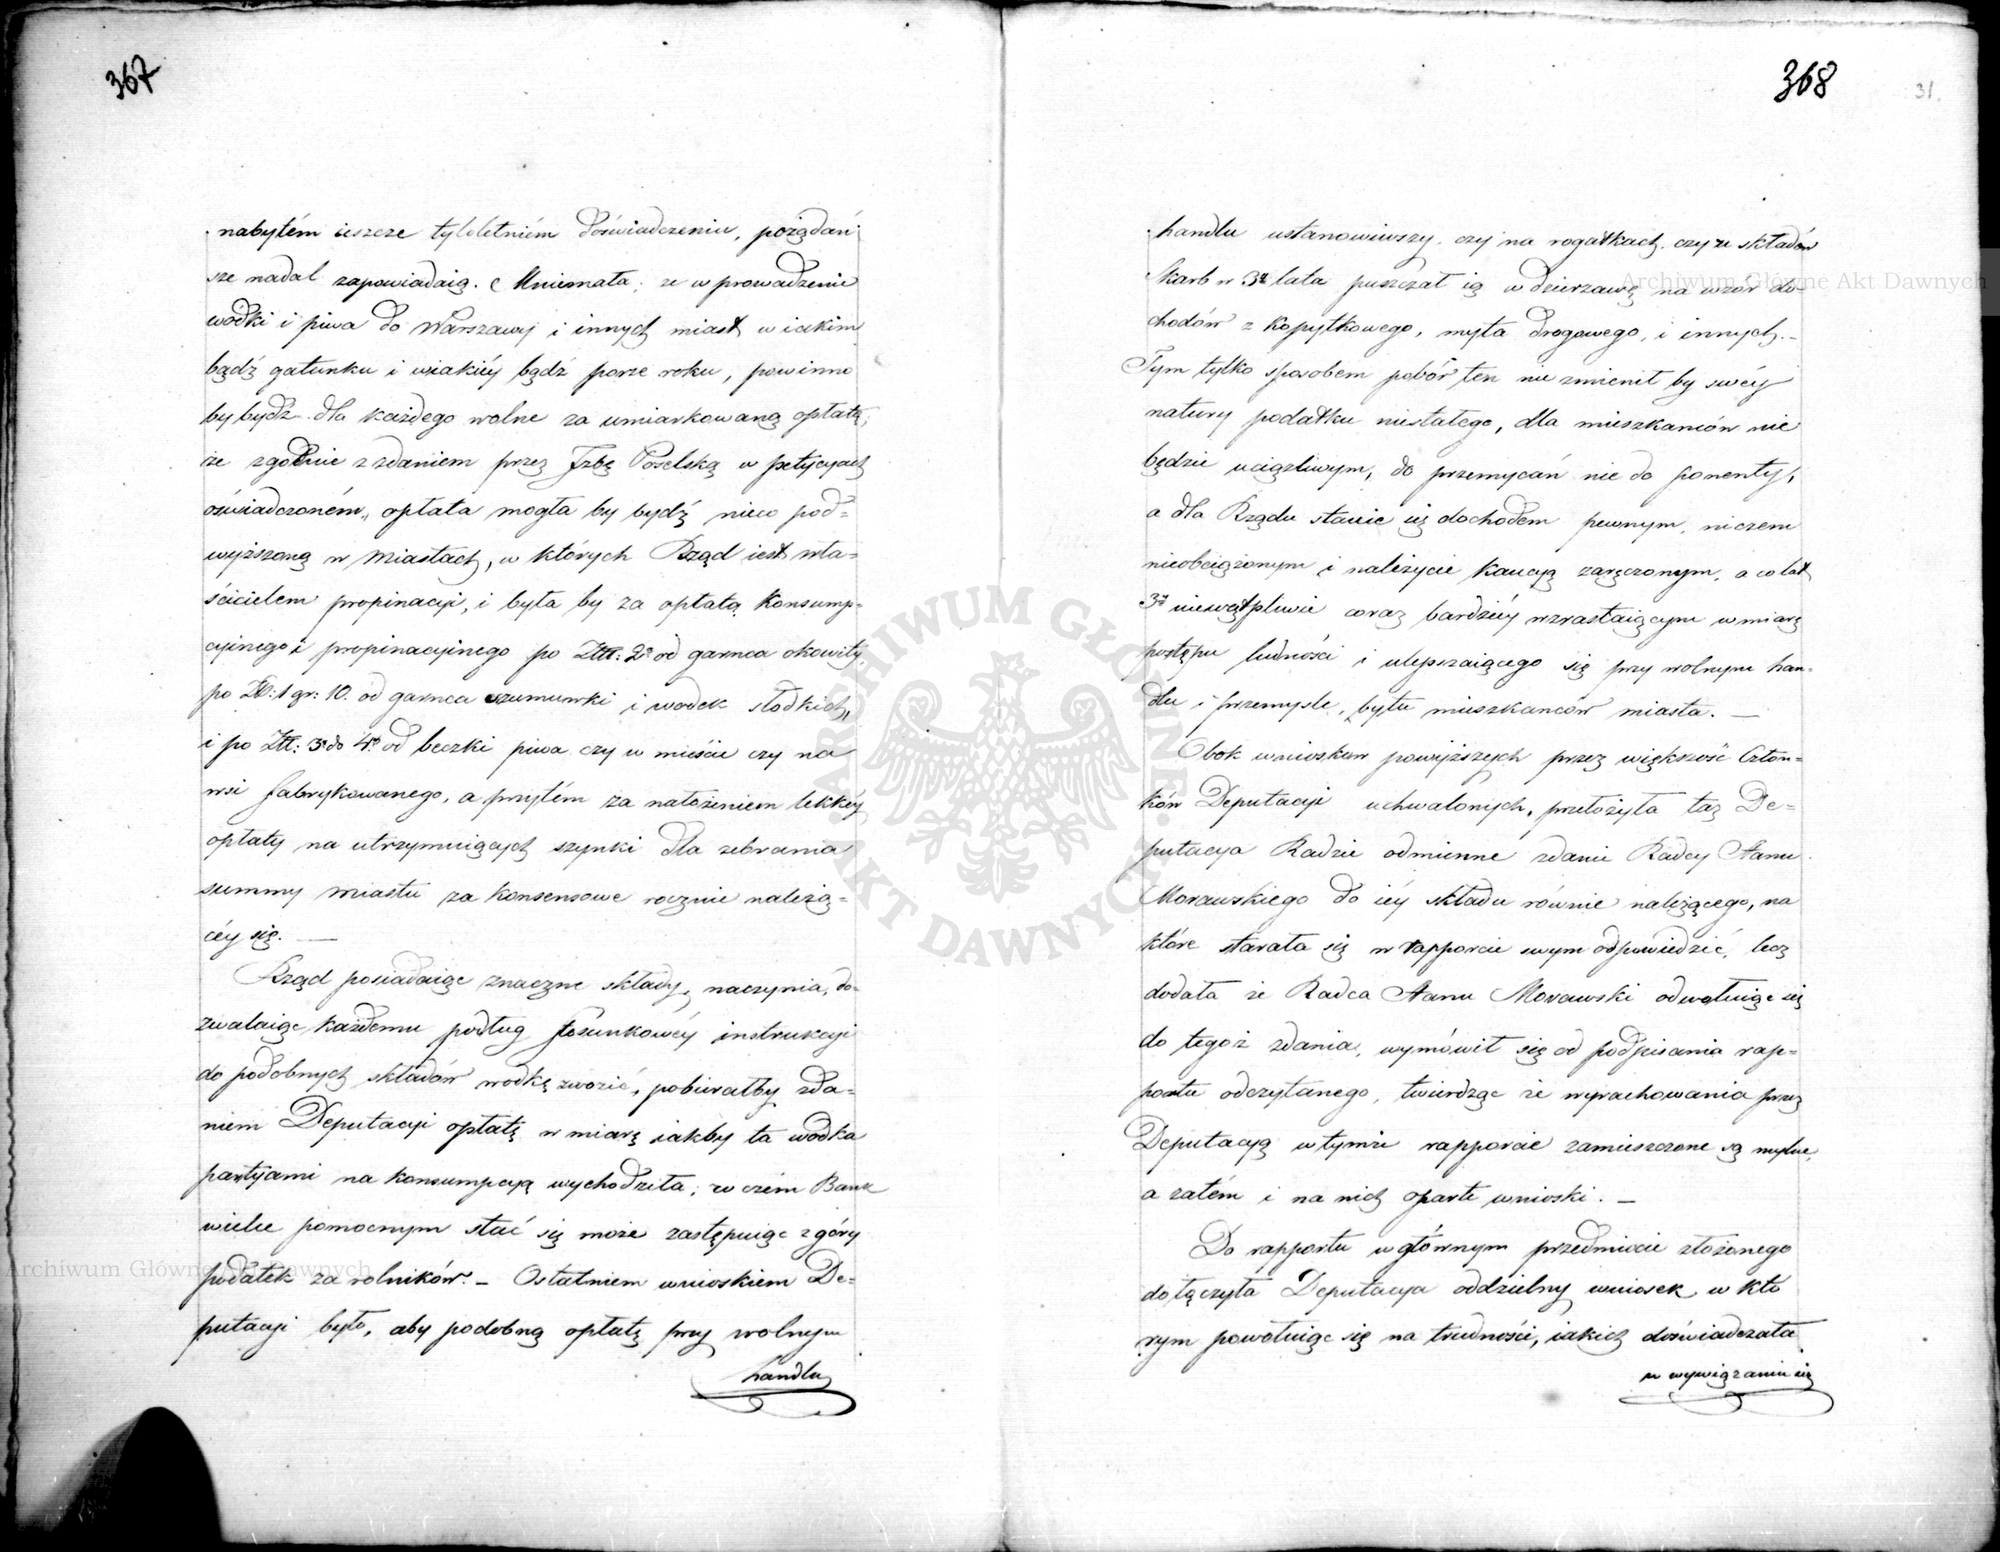 367
nabytém ieszcze tyloletniém doświadczeniu, pożądań
sze nadal zapowiadaią. Mniemała, że wprowadzenie
wódki i piwa do Warszawy i innych miast w iakim
bądź gatunku i wiakiéy bądź porze roku, powinno
by bydź dla każdego wolne za umiarkowaną opłatą;
że zgodnie z zdaniem przez Jzbę Poselską w petycyach
oświadczoném, opłata mogła by bydź nieco pod=
wyższoną w miastach, w których Rząd iest wła=
ścicielem propinacyi, i była by za opłatą Konsump=
cyinego i propinacyinego po Złt: 2. od garnca okowity,
po Zł: 1 gr: 10. od garnca szumurki i wodek słodkich,
i po Złt: 3 do 4. od beczki piwa czy w mieście czy na
wsi fabrykowanego, a przytém za nałożeniem lekkéy
opłaty na utrzymuiących szynki dla zebrania
summy miastu za konsensowe rocznie należą=
céy się. —
Rząd posiadaiąc znaczne składy, naczynia, do=
zwalaiąc każdemu podług stosunkowéy instrukcyi
do podobnych składów wodkę zwozić, pobierałby zda=
niem Deputacyi opłatę w miarę iakby ta wodka
partyami na konsumpcyą wychodziła; w czém Bank
wielce pomocnym stać się może zastępuiąc z góry
podatek za rolników. – Ostatniem wnioskiem De=
putacyi było, aby podobną opłatę przy wolnym
handlu
368
31.
handlu ustanowiwszy, czy na rogatkach, czy ze składów
Skarb w 3 lata puszczał ią w dzierżawę na wzór do=
chodów z kopytkowego, myta drogowego, i innych. –
Tym tylko sposobem pobór ten nie zmienił by swéy
natury podatku niestałego, dla mieszkańców nie
będzie uciążliwym, do przemycań nie do ponenty,
a dla Rządu stanie się dochodem pewnym, niczem
nieobciążonym i należycie kaucyą zaręczonym, a co lat
3 niewątpliwie coraz bardziéy wzrastaiącym w miarę
postępu ludności i ulepszaiącego się przy wolnym han=
dlu i przemysle, bytu mieszkańców miasta. —
Obok wniosków powyższych przez większość Człon=
ków Deputacyi uchwalonych, przełożyła taż De=
putacya Radzie odmienne zdanie Radcy Stanu
Morawskiego do iéy składu równie należącego, na
które starała się w rapporcie swym odpowiedzić, lecz
dodała że Radca Stanu Morawski odwołuiąc się
do tegoż zdania, wymówił się od podpisania rap=
portu odczytanego, twierdząc że wyrachowania przez
Deputacyą w tymże rapporcie zamieszczone są mylne,
a zatém i na nich oparte wnioski. —
Do rapportu w głównym przedmiocie złożonego
dołączyła Deputacya oddzielny wniosek w któ
rym powołuiąc się na trudności, iakich doświadczała
w wywiązaniu się
Archiwum Główne Akt Dawnych
Archiwum Główne Akt Dawnych
ARCHIWUM GŁÓWNE AKT DAWNYCH